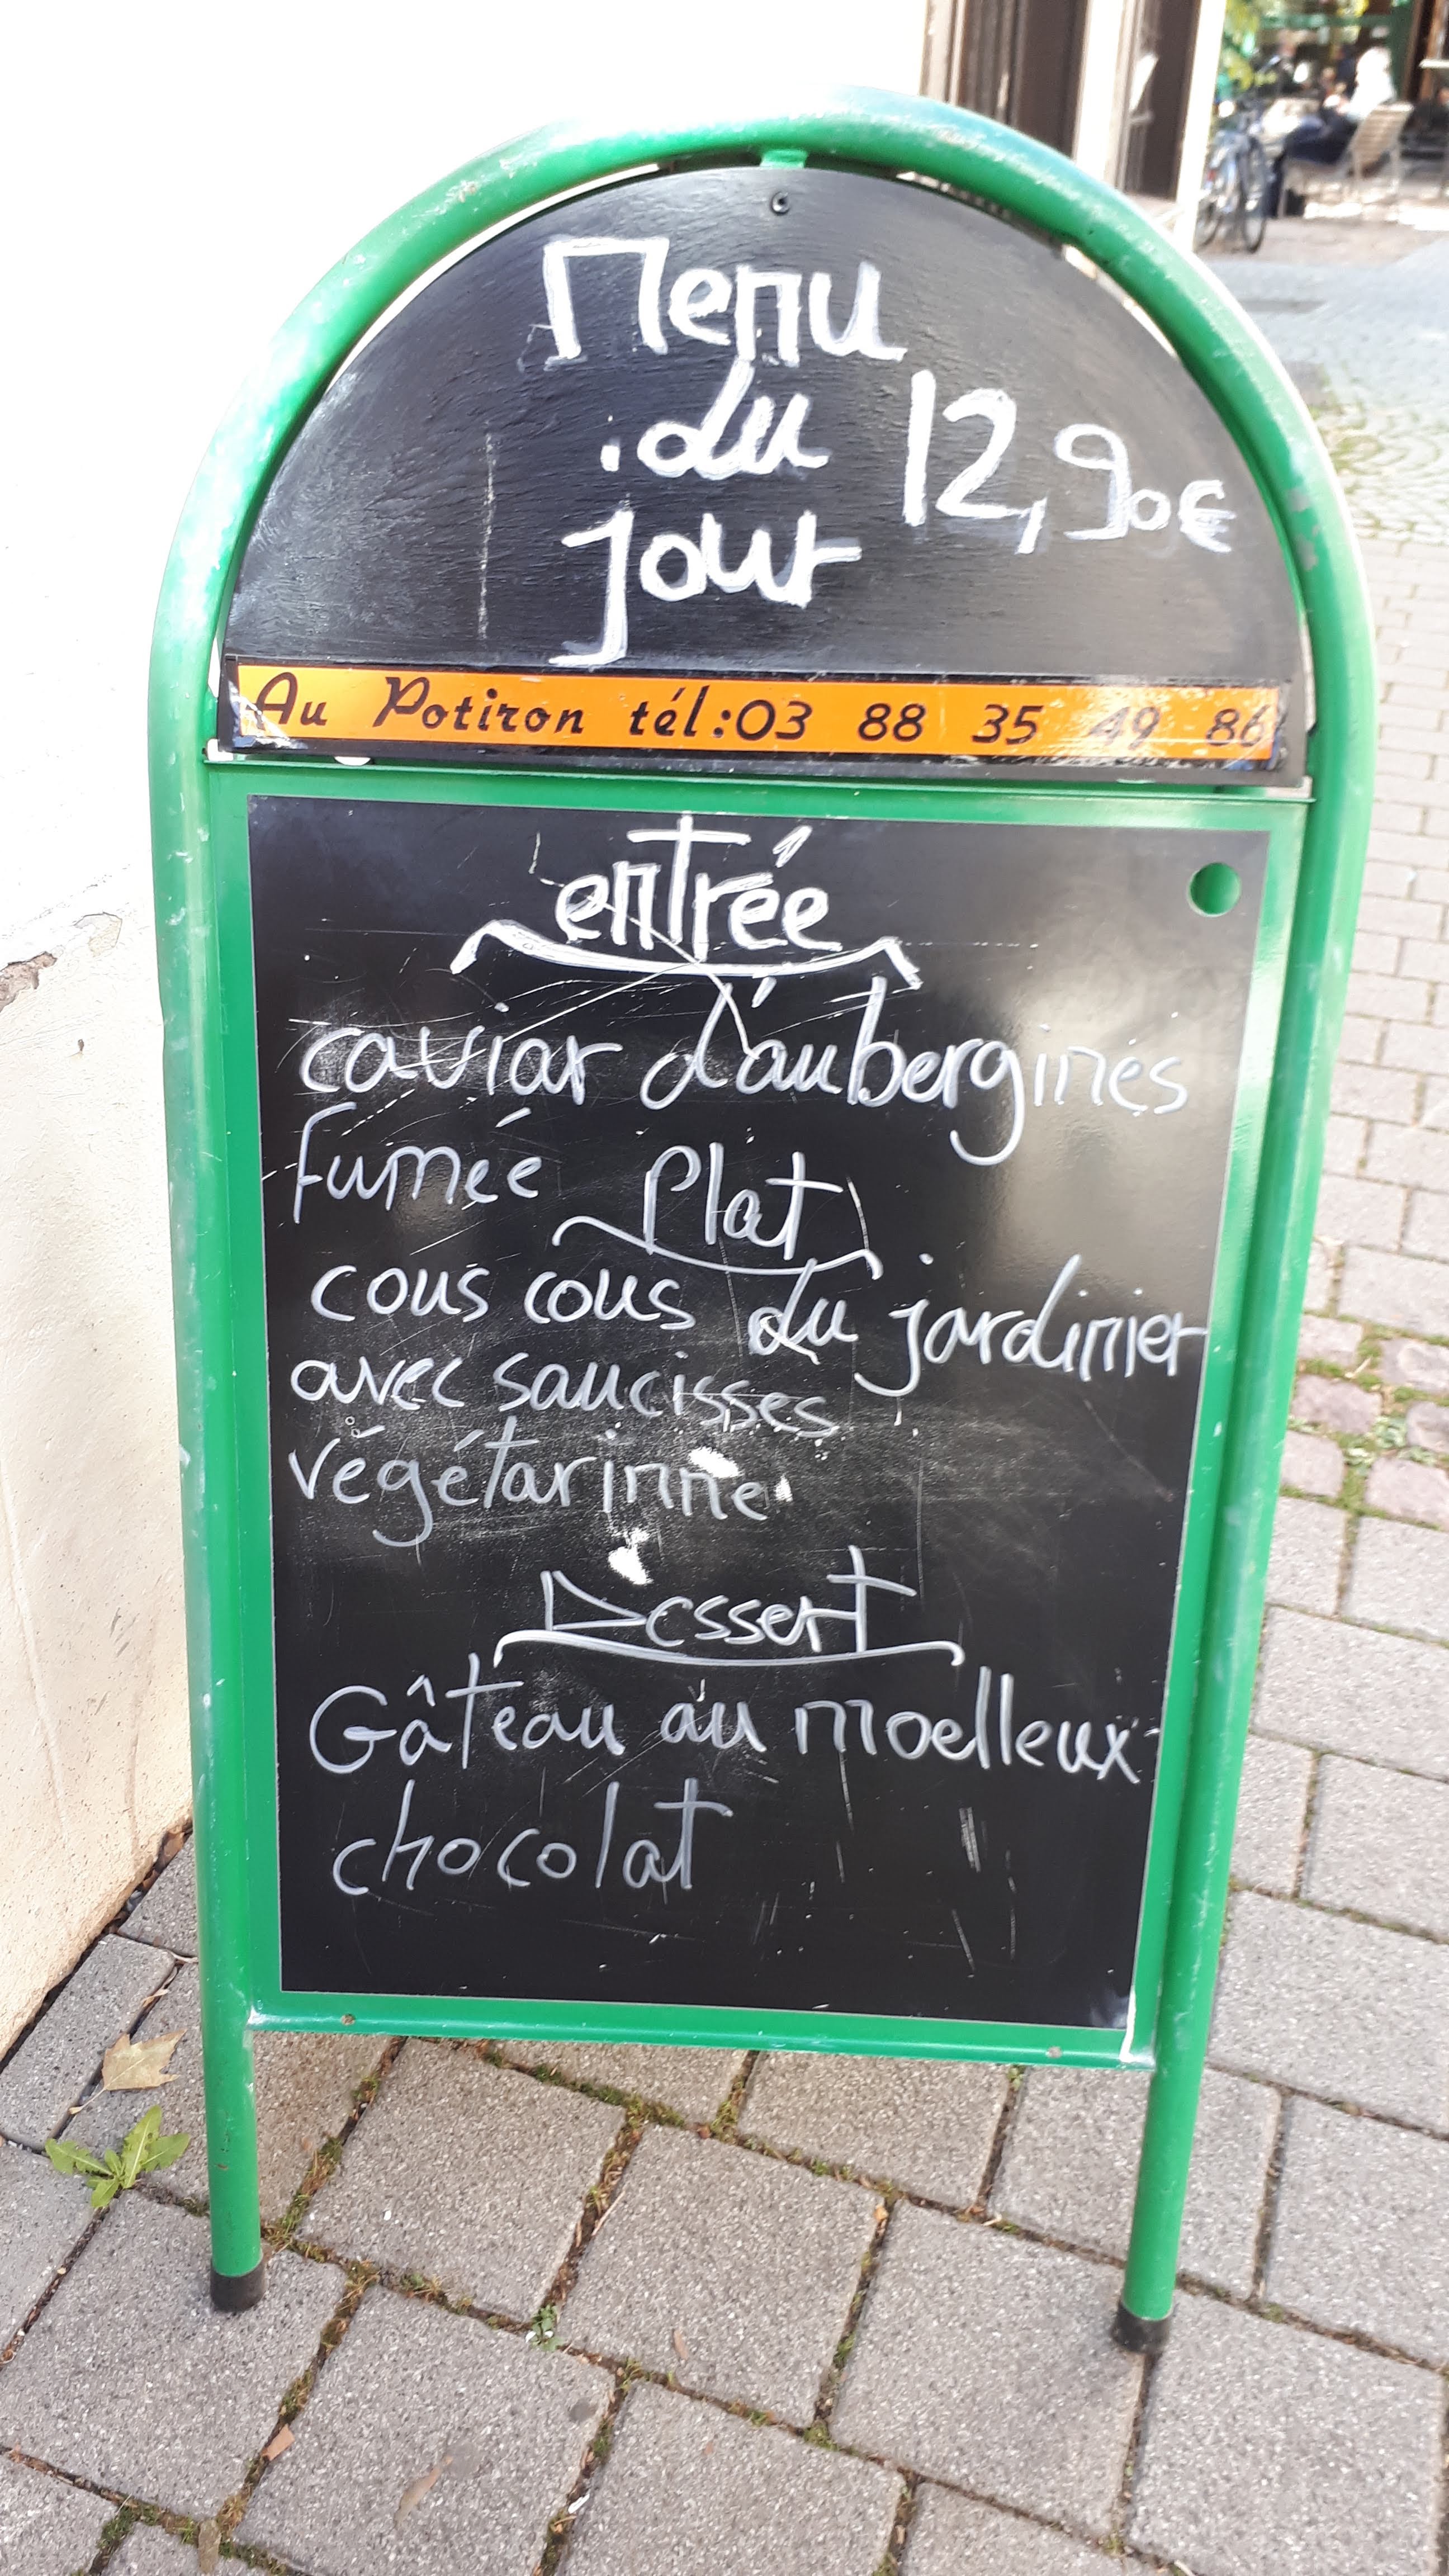 Menu
du 12,90€
jour
Au Potiron tél:03 88 35 49 86
entrée
caviar d'aubergines
fumée
Plat
cous cous du jardinier
avec saucisses
végétarinne
Dessert
Gâteau au moelleux
chocolat